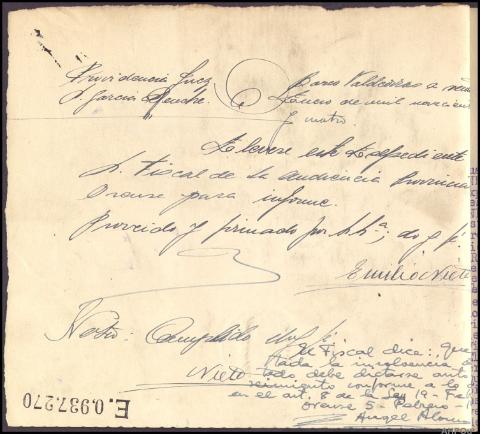 Providencia Juez
S. García
Barco Valdeorras a
Enero de mil novecien
y
Elevese este Expediente
S. Fiscal de la Audiencia Provincia
Orense para informe.
Proveido y firmado por S.Sª, doy fé
Emilio Nieto
Nota: Cumplido doy fé
Nieto
El Fiscal dice: que
tada la insolvencia
tado debe dictarse aut
seimiento conforme a lo
en el art. 8 de la Ley 19 - Fe
Orense 5 - Febrero -
Angel Alons
E.0.937.270